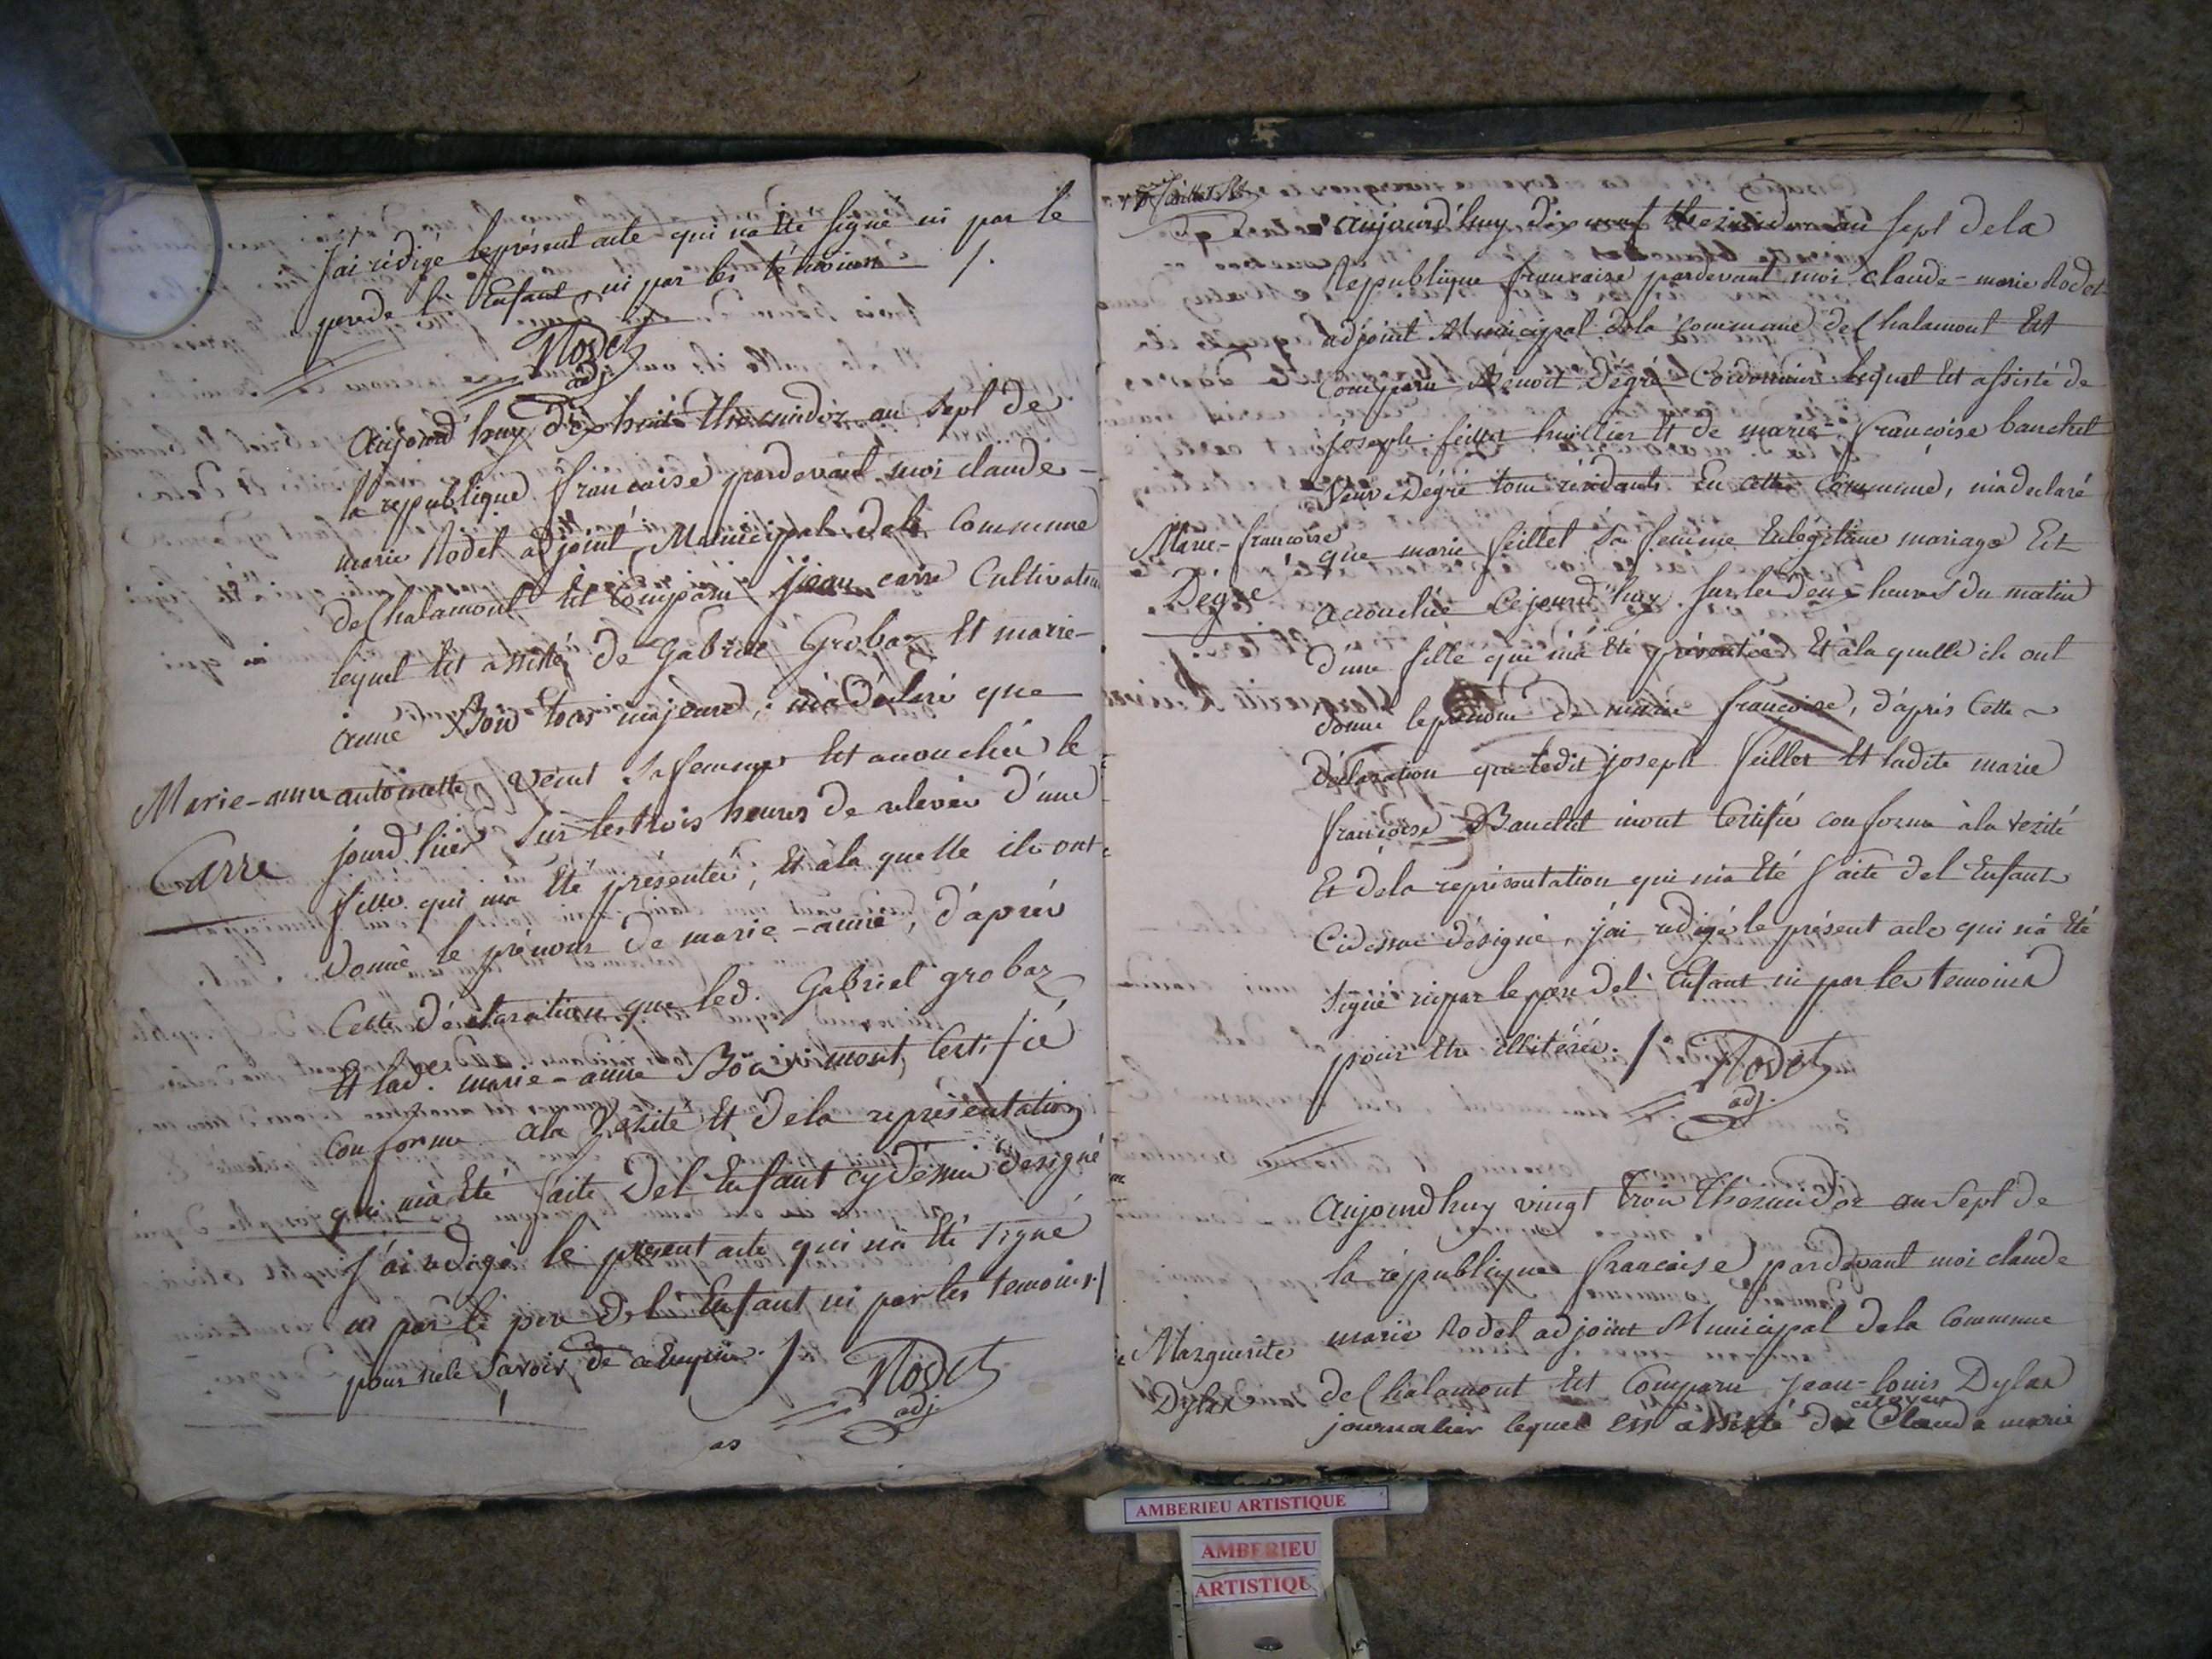 j'ai rédigé le présent acte qui na été signé ni par le
pere de l'Enfant ni par les témoins /.
Rodet
adj.
Aujourd'huy dix huit thermidor an sept de
la republique francaise pardevant moi claude-
marie Rodet adjoint Municipal dela Commune
de Chalamont Est Comparu jean carre Cultivateur
lequel Est assisté de Gabriel Grobaz Et marie-
anne Boin tous majeurs, m'a déclaré que
Marie-anne
Carre
antoinette Veint Sa femme Est accouchée le
jourd'hier Sur les trois heures de relevée d'une
fille qui m'a Eté présentée, Et à la quelle ils ont
donné le prénom de marie-anne, d'après
Cette déclaration que led. Gabriel grobaz
Et lad. marie-anne Boin m'ont Certifié
Conforme a la Vérité Et dela représentation
qui m'a Eté faite Del Enfant cy dessus designé
j'ai rédigé le présent acte qui n'a Eté signé
ni par le pere del'Enfant ni par les temoins /
pour ne le Savoir de ce enquis. /
Rodet
adj.
Aujourd'huy dix neuf thermidor an sept dela
Republique francaise pardevant moi Claude-marie Rodet
adjoint Municipal dela Commune de Chalamont Est
Comparu Benoit Dégré Cordonnier lequel Est assisté de
joseph feillet huillier Et de marie-francoise bauchet
Veuve Dégré tous résidants En cette Commune, m'a declaré
Marie-francoise
Dégré
que marie feillet Sa femme En légitime mariage Est
accouchée Cejourd'huy Sur les deux heures du matin
d'une fille qui m'a Eté présentée Et à la quelle ils ont
donné le prénom de marie francoise, d'après Cette
déclaration que ledit joseph feillet Et ladite marie
francoise Bauchet m'ont Certifié conforme à la vérité
Et dela représentation qui m'a Eté faite del Enfant
Cidessus désigné, j'ai rédigé le présent acte qui n'a Eté
signé ni par le pere del'Enfant ni par les temoins
pour Etre illitérés. /.
Rodet
adj.
Aujourd'huy vingt trois thermidor an Sept de
la république francaise pardevant moi claude
marie Rodet adjoint Municipal dela Commune
Marguerite
Dylas
de Chalamont Est Comparu jean-louis Dylas
citoyen
journalier lequel Est assisté du Claude marie
AMBERIEU ARTISTIQUE
AMBERIEU
ARTISTIQU